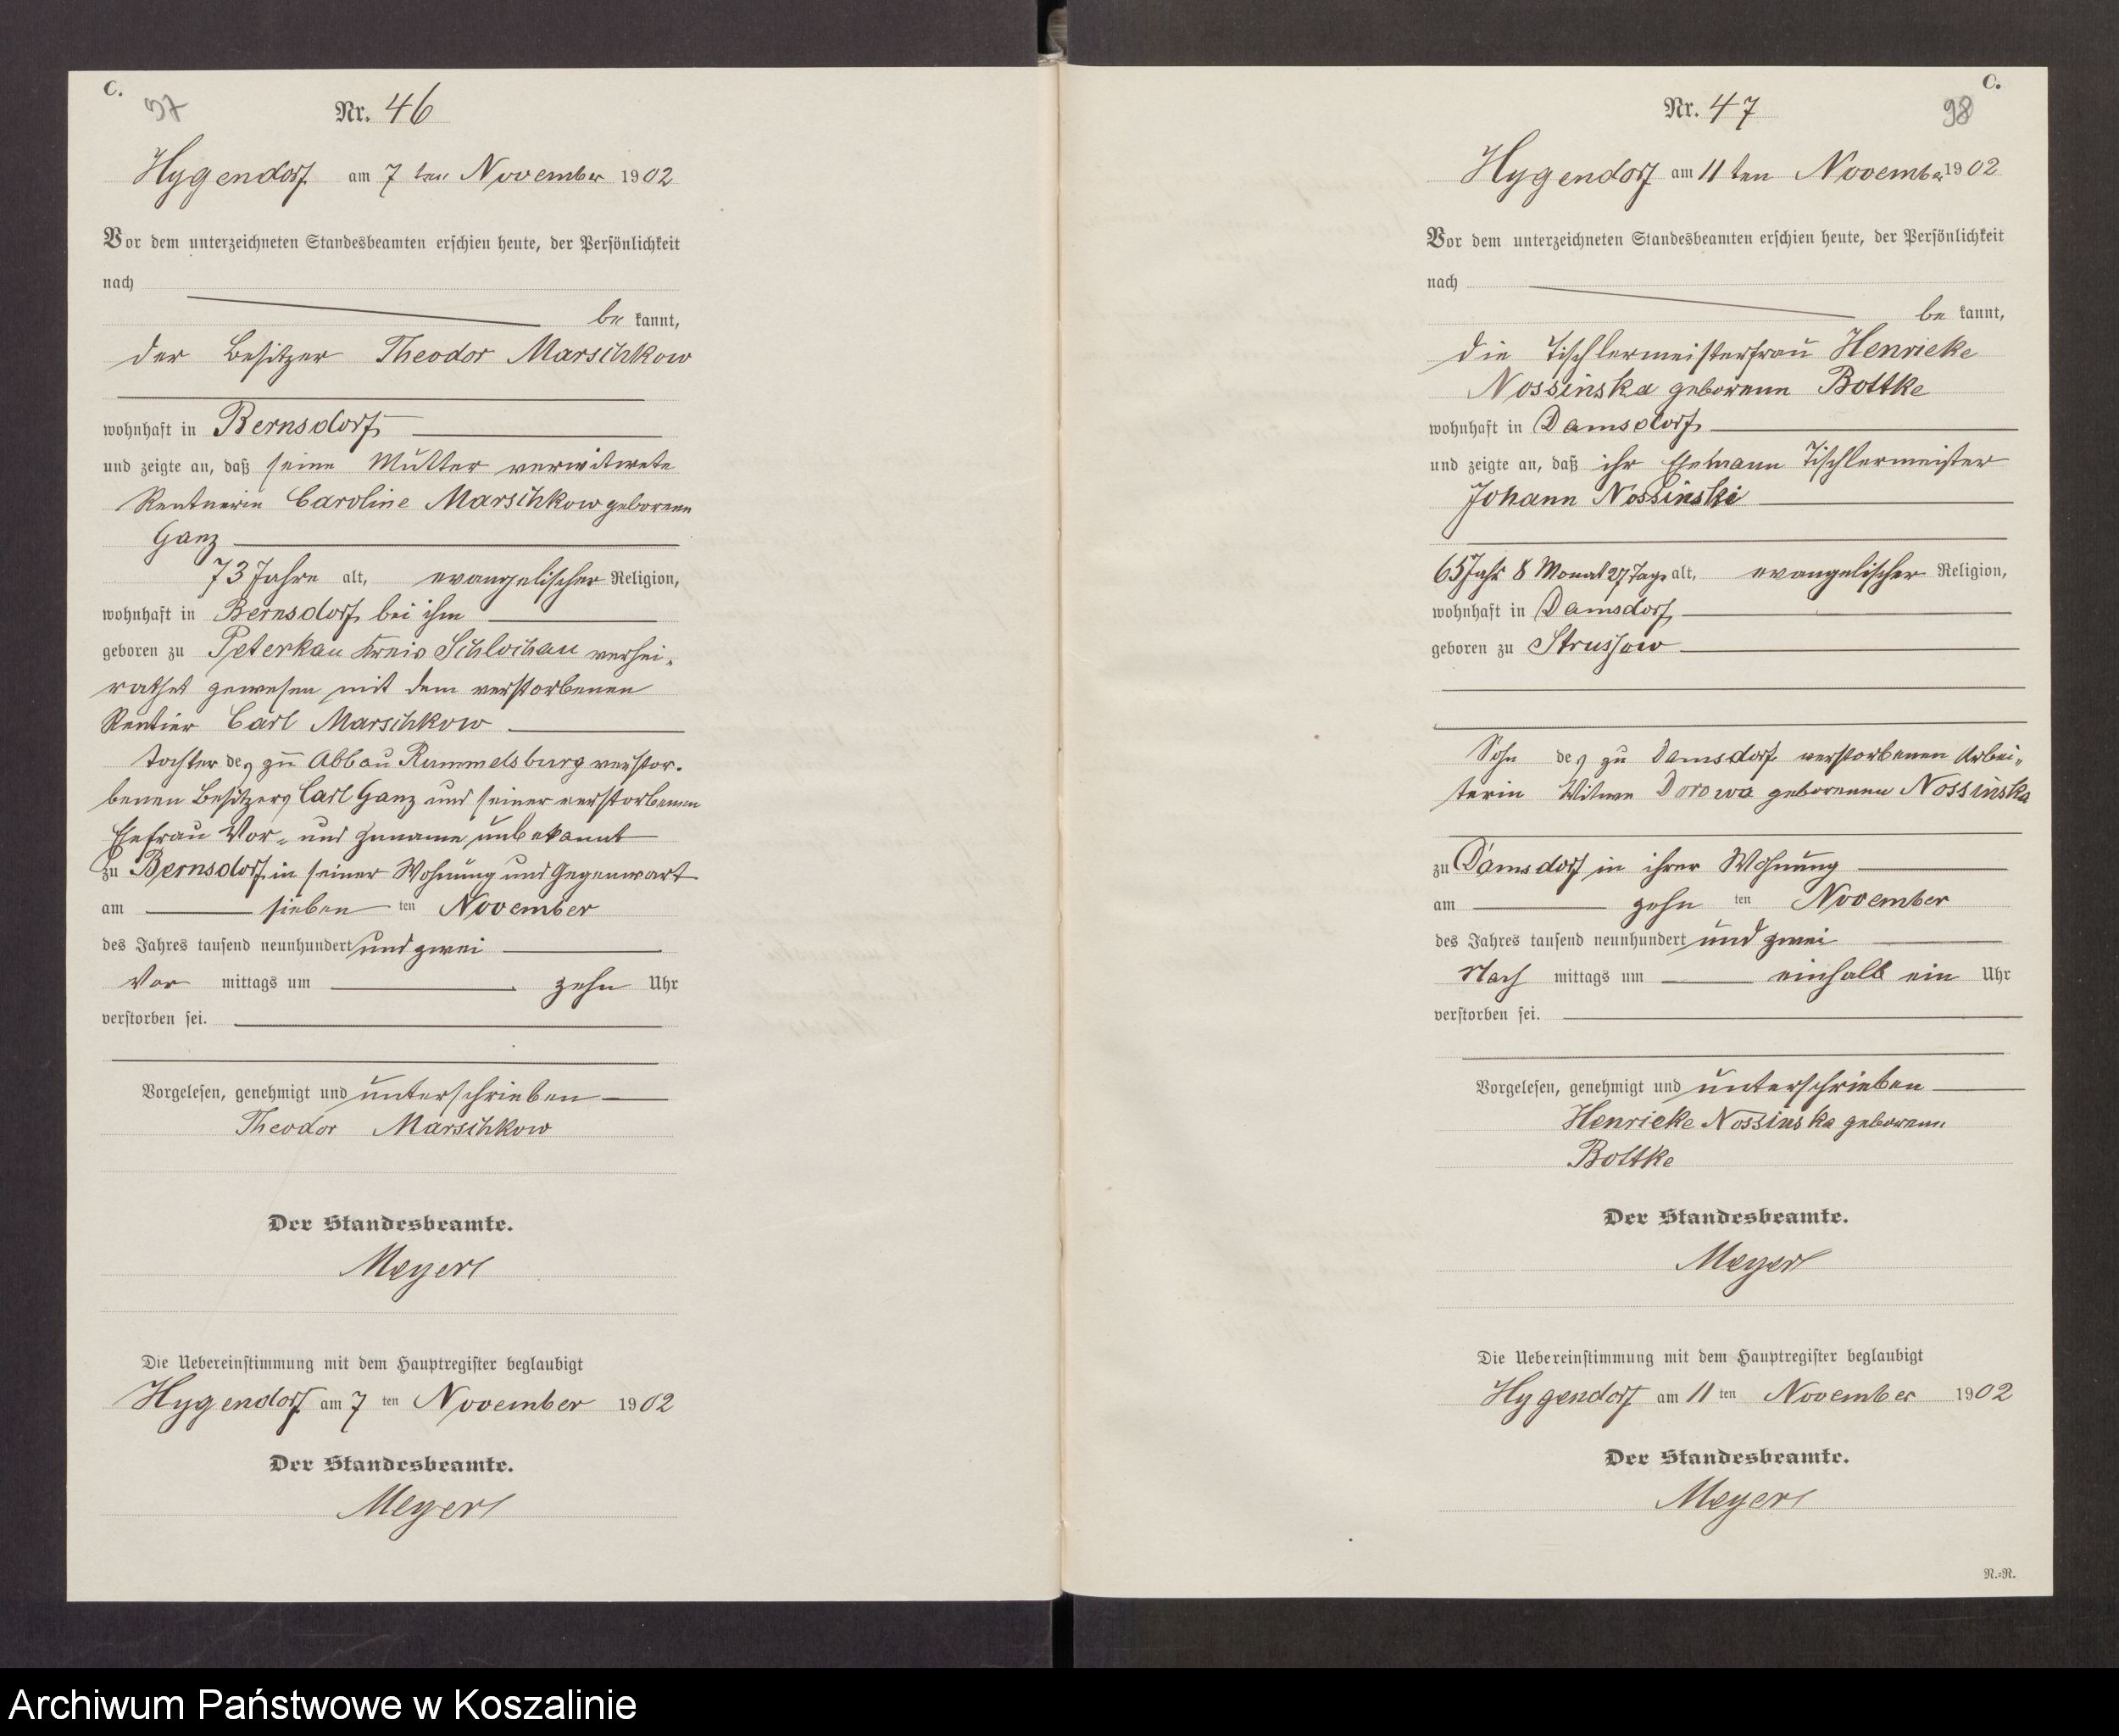 C.
97
Nr. 46
Hygendorf am 7 ten November 1902
Vor dem unterzeichneten Standesbeamten erschien heute, der Persönlichkeit
nach
be kannt,
der Besitzer Theodor Marschkow
wohnhaft in Bernsdorf
und zeigte an, daß seine Mutter verwitwete
Rentnerin Caroline Marschkow geborene
Ganz
73 Jahre alt, evangelischer Religion,
wohnhaft in Bernsdorf bei ihm
geboren zu Peterkau Kreis Schlochau verhei-
rathet gewesen mit dem verstorbenen
Rentier Carl Marschkow
Tochter des zu Abbau Rummelsburg verstor-
benen Besitzers Carl Ganz und seiner verstorbenen
Ehefrau Vor- und Zuname unbekannt
zu Bernsdorf in seiner Wohnung und Gegenwart
am sieben ten November
des Jahres tausend neunhundert und zwei
Vor mittags um zehn Uhr
verstorben sei.
Vorgelesen, genehmigt und unterschrieben
Theodor Marschkow
Der Standesbeamte.
Meyer
Die Uebereinstimmung mit dem Hauptregister beglaubigt
Hygendorf am 7 ten November 1902
Der Standesbeamte.
Meyer
C.
98
Nr. 47
Hygendorf am 11 ten November 1902
Vor dem unterzeichneten Standesbeamten erschien heute, der Persönlichkeit
nach
be kannt,
die Tischlermeisterfrau Henrieke
Nossinska geborenen Bottke
wohnhaft in Damsdorf
und zeigte an, daß ihr Ehemann Tischlermeister
Johann Nossinski
65 Jahr 8 Monat 27 Tage alt, evangelischer Religion,
wohnhaft in Damsdorf
geboren zu Strussow
Sohn des zu Damsdorf verstorbenen Arbei-
terin Witwe Dorowa geborenen Nossinska
zu Damsdorf in ihrer Wohnung
am zehn ten November
des Jahres tausend neunhundert und zwei
Nach mittags um einhalb ein Uhr
verstorben sei.
Vorgelesen, genehmigt und unterschrieben
Henrieke Nossinska geborene
Bottke
Der Standesbeamte.
Meyer
Die Uebereinstimmung mit dem Hauptregister beglaubigt
Hygendorf am 11 ten November 1902
Der Standesbeamte.
Meyer
N.=N.
Archiwum Państwowe w Koszalinie